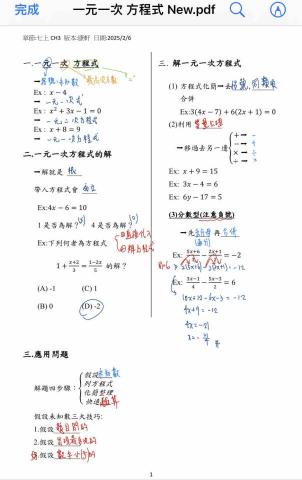 完成
一元一次 方程式 New.pdf
章節:七上 CH3 版本:康軒 日期:2025/2/6
一.一元一次 方程式
最高次方
Ex: x − 4
→ 一元一次式
Ex: x² + 3x − 1 = 0
→ 一元二次方程式
Ex: x + 8 = 9
→ 一元一次方程式
二.一元一次方程式的解
→解就是 根
帶入方程式會 成立
Ex:4x − 6 = 10
1 是否為解?(x) 4 是否為解?(o)
Ex:下列何者為方程式
1 + (x+2)/3 = (1−2x)/5 的解?
(A) -1 (C) 1
(B) 0 (D) -2
三.應用問題
解題四步驟:
假設未知數
列方程式
化簡整理
快速驗算
假設未知數三大技巧:
1.假設 題目問的
2.假設
3.假設 數字小的
三. 解一元一次方程式
(1) 方程式化簡→去括號,同類項
合併
Ex:3(4x − 7) + 6(2x + 1) = 0
(2)利用 等量公理
→移過去另一邊
+ → −
− → +
× → ÷
÷ → ×
Ex: x + 9 = 15
Ex: 3x − 4 = 6
Ex: 6y − 17 = 5
(3)分數型(注意負號)
→先 再合併
(通分)
Ex: (5x+6)/3 − (2x+1)/2 = −2
2(5x+6) − 3(2x+1) = −12
Ex: (3x−1)/4 − (5x−3)/2 = 6
10x + 12 − 6x − 3 = −12
4x + 9 = −12
4x = −21
x = −21/4
1